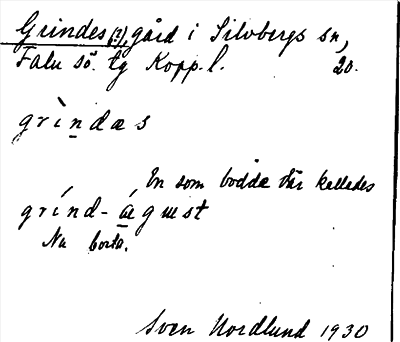 Grindes (?), gård i Silvbergs sn,
Falu sö. tg Kopp. l. 20.
grìndæs
En som bodde där kallades
grínd-águst
Nu borta.
Sven Nordlund 1930